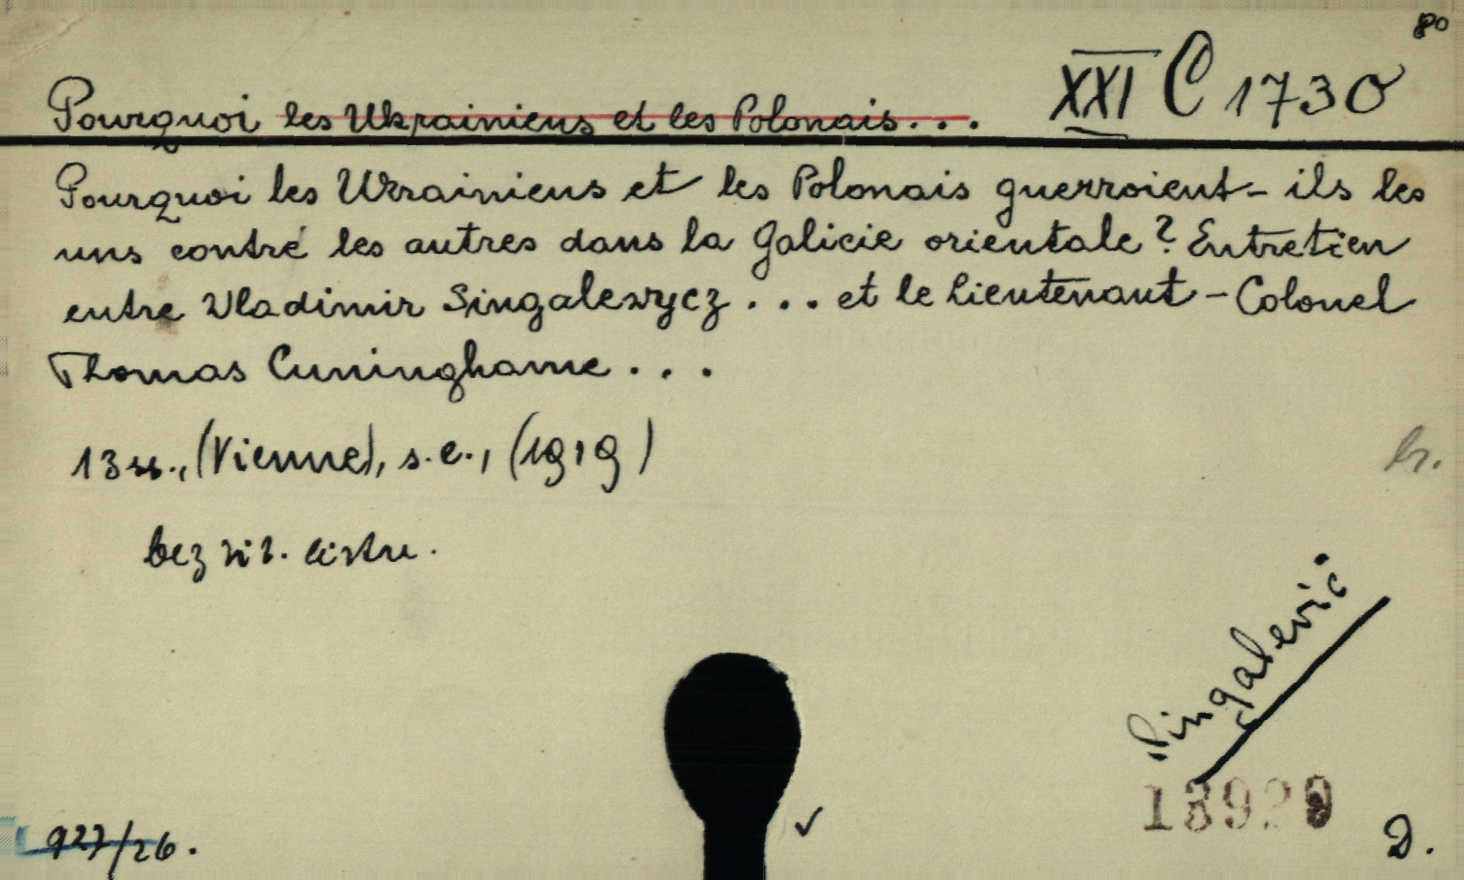 80
Pourquoi les Ukrainiens et les Polonais... XXI C 1730
Pourquoi les Ukrainiens et les Polonais guerroient-ils les
uns contre les autres dans la Galicie orientale? Entretien
entre Vladimir Singalewycz... et le Lieutenant-Colonel
Thomas Cuninghame...
13 ss., (Vienne), s.e., (1919)
br.
bez tit. listu.
Singalevič
927/26.
D.